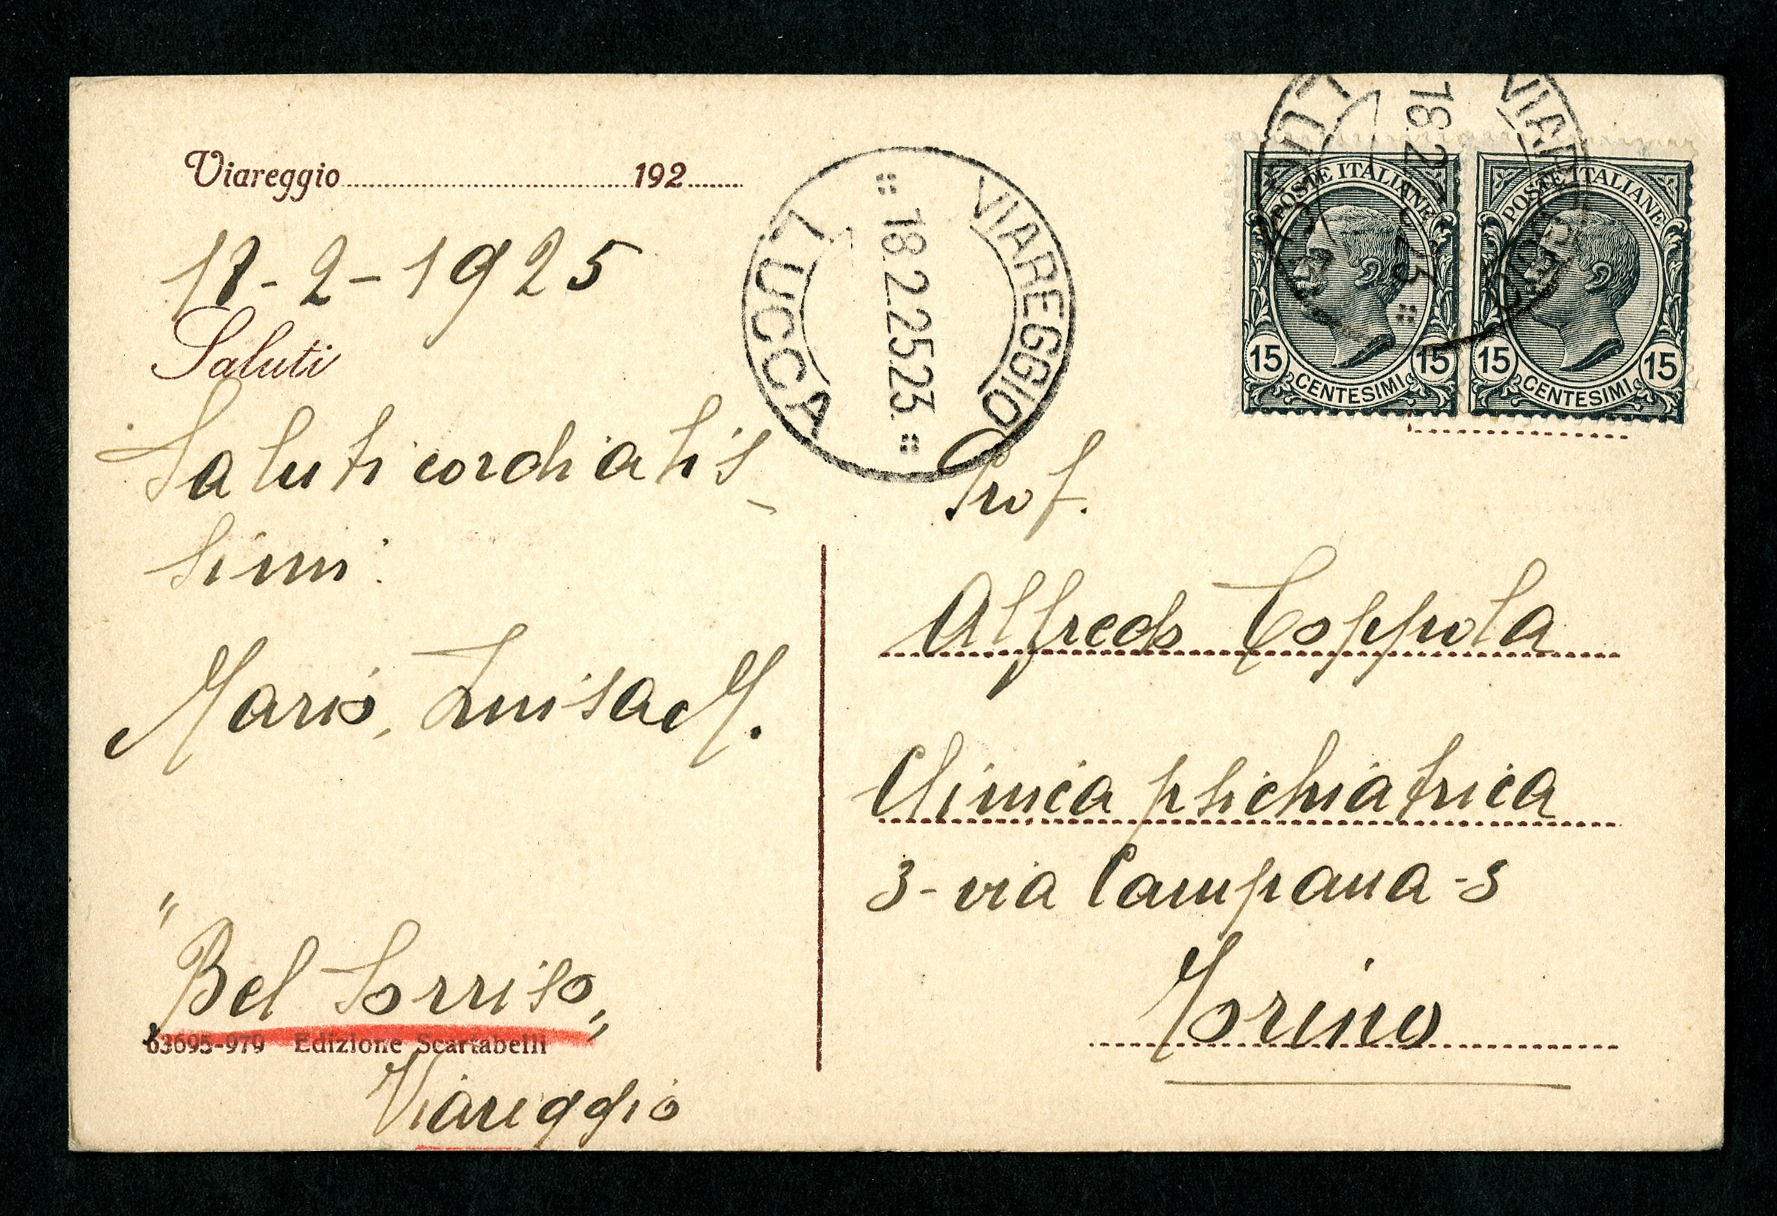 Viareggio 192
18-2-1925
Saluti
Saluti cordialis_
simi:
Mario, Luisa M.
"Bel Sorriso"
63695-979 Edizione Scartabelli
Viareggio
VIAREGGIO
18.2.25.23.
LUCCA
VIAR
18 2
LU
POSTE ITALIANE
15 CENTESIMI 15
POSTE ITALIANE
15 CENTESIMI 15
Prof.
Alfredo Coppola
Clinica psichiatrica
3-via Campana-3
Torino